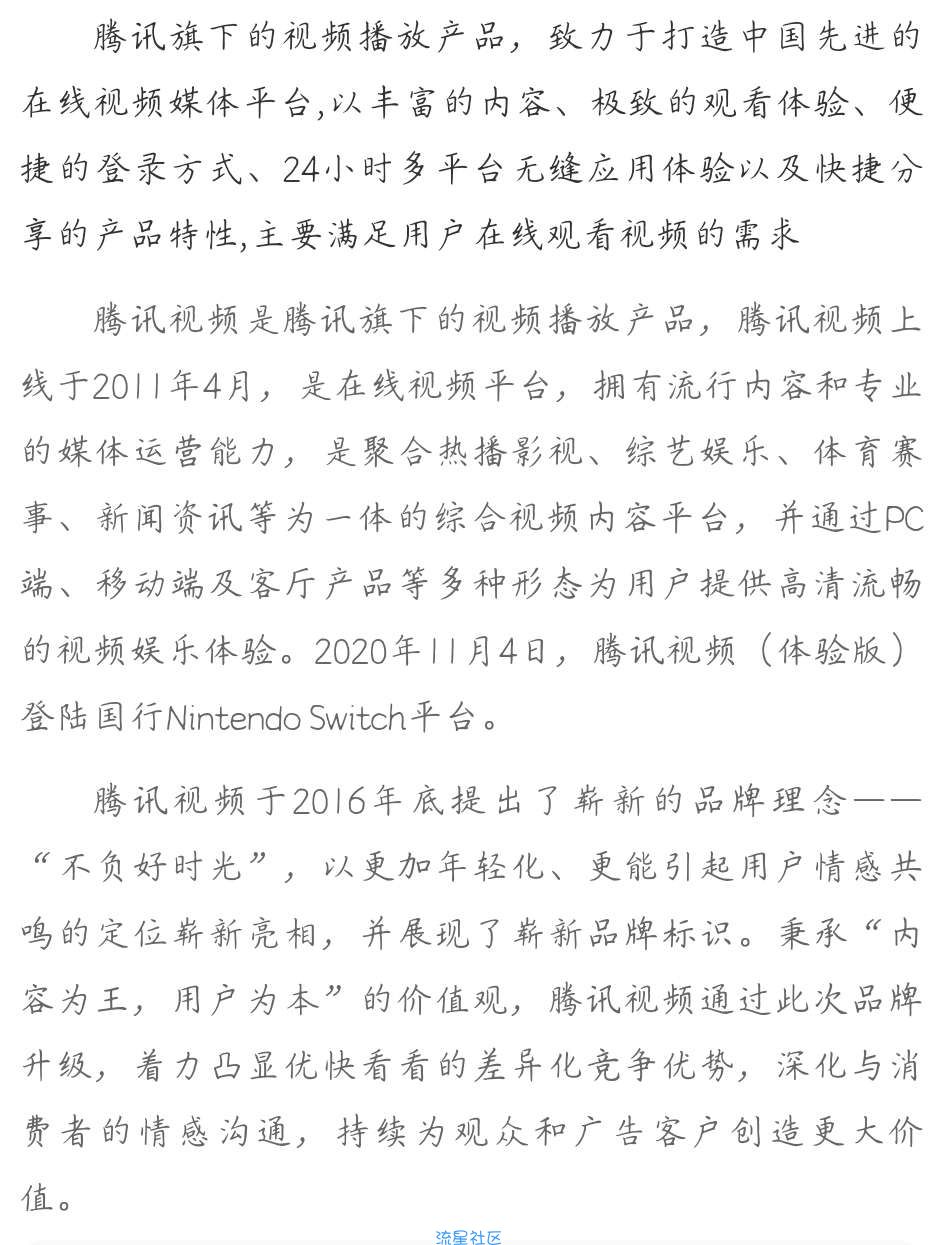 腾讯旗下的视频播放产品，致力于打造中国先进的
在线视频媒体平台,以丰富的内容、极致的观看体验、便
捷的登录方式、24小时多平台无缝应用体验以及快捷分
享的产品特性,主要满足用户在线观看视频的需求
腾讯视频是腾讯旗下的视频播放产品，腾讯视频上
线于2011年4月，是在线视频平台，拥有流行内容和专业
的媒体运营能力，是聚合热播影视、综艺娱乐、体育赛
事、新闻资讯等为一体的综合视频内容平台，并通过PC
端、移动端及客厅产品等多种形态为用户提供高清流畅
的视频娱乐体验。2020年11月4日，腾讯视频（体验版）
登陆国行Nintendo Switch平台。
腾讯视频于2016年底提出了崭新的品牌理念——
“不负好时光”，以更加年轻化、更能引起用户情感共
鸣的定位崭新亮相，并展现了崭新品牌标识。秉承“内
容为王，用户为本”的价值观，腾讯视频通过此次品牌
升级，着力凸显优快看看的差异化竞争优势，深化与消
费者的情感沟通，持续为观众和广告客户创造更大价
值。
流星社区